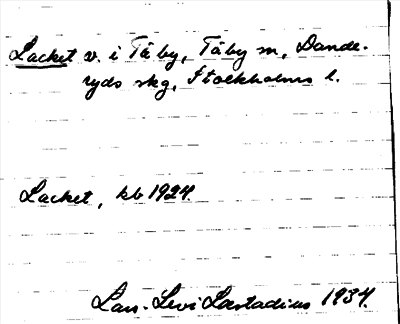 Lacket v. i Täby, Täby sn, Dande-
ryds skg, Stockholms l.
Lacket, kb 1924.
Lars-Levi Læstadius 1934.